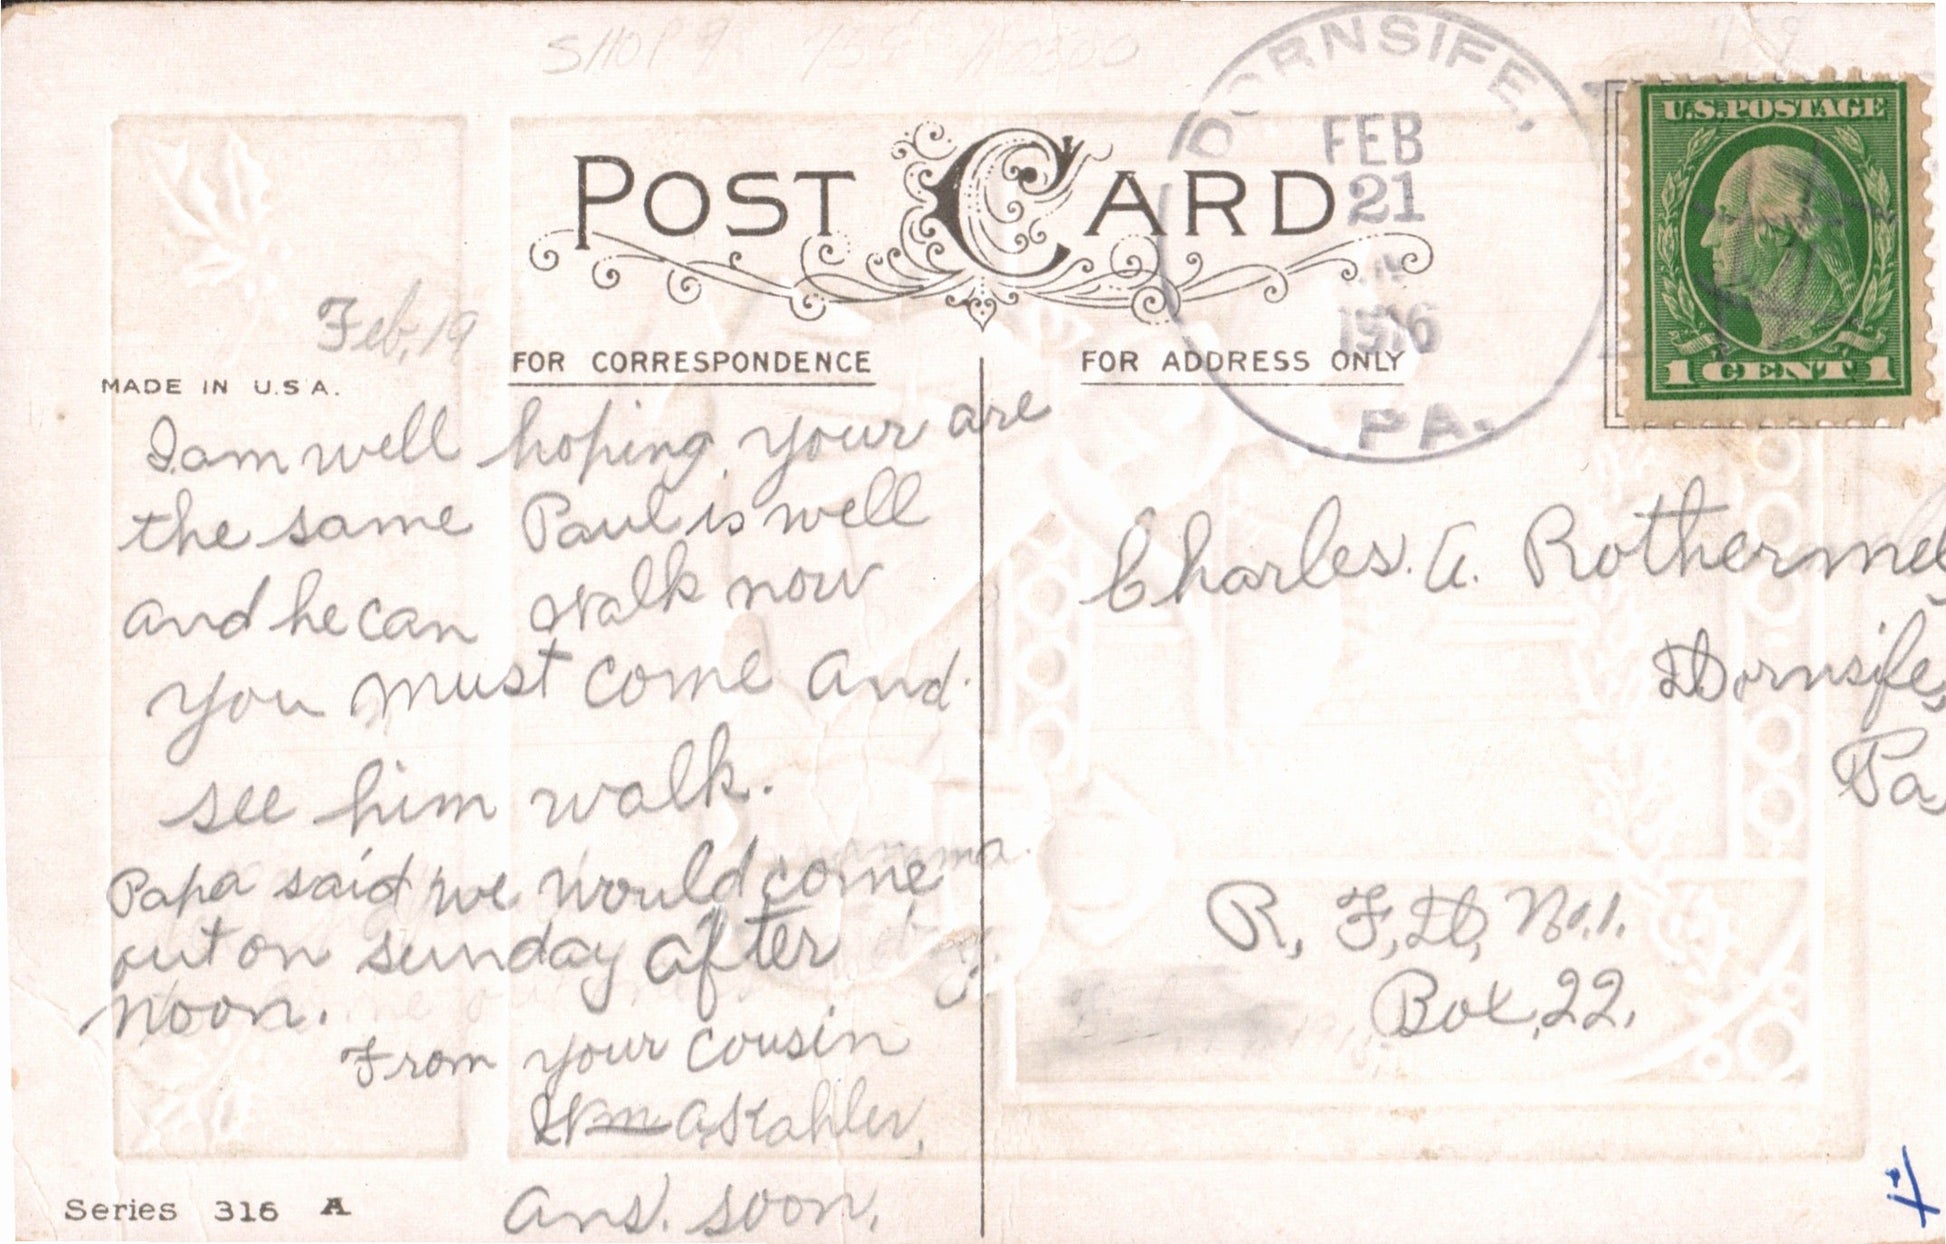 DORNSIFE,
FEB
21
1916
PA.
U.S. POSTAGE
1 CENT 1
POST CARD
Feb, 19
MADE IN U.S.A.
FOR CORRESPONDENCE
FOR ADDRESS ONLY
I am well hoping your are
the same Paul is well
and he can walk now
you must come and
see him walk.
Papa said we would come
out on sunday after
noon.
From your cousin
Wm A Kahler,
Ans. soon.
Charles. A. Rothermel
Dornsife,
Pa
R, F, D, No. 1.
Box, 22.
Series 316 A